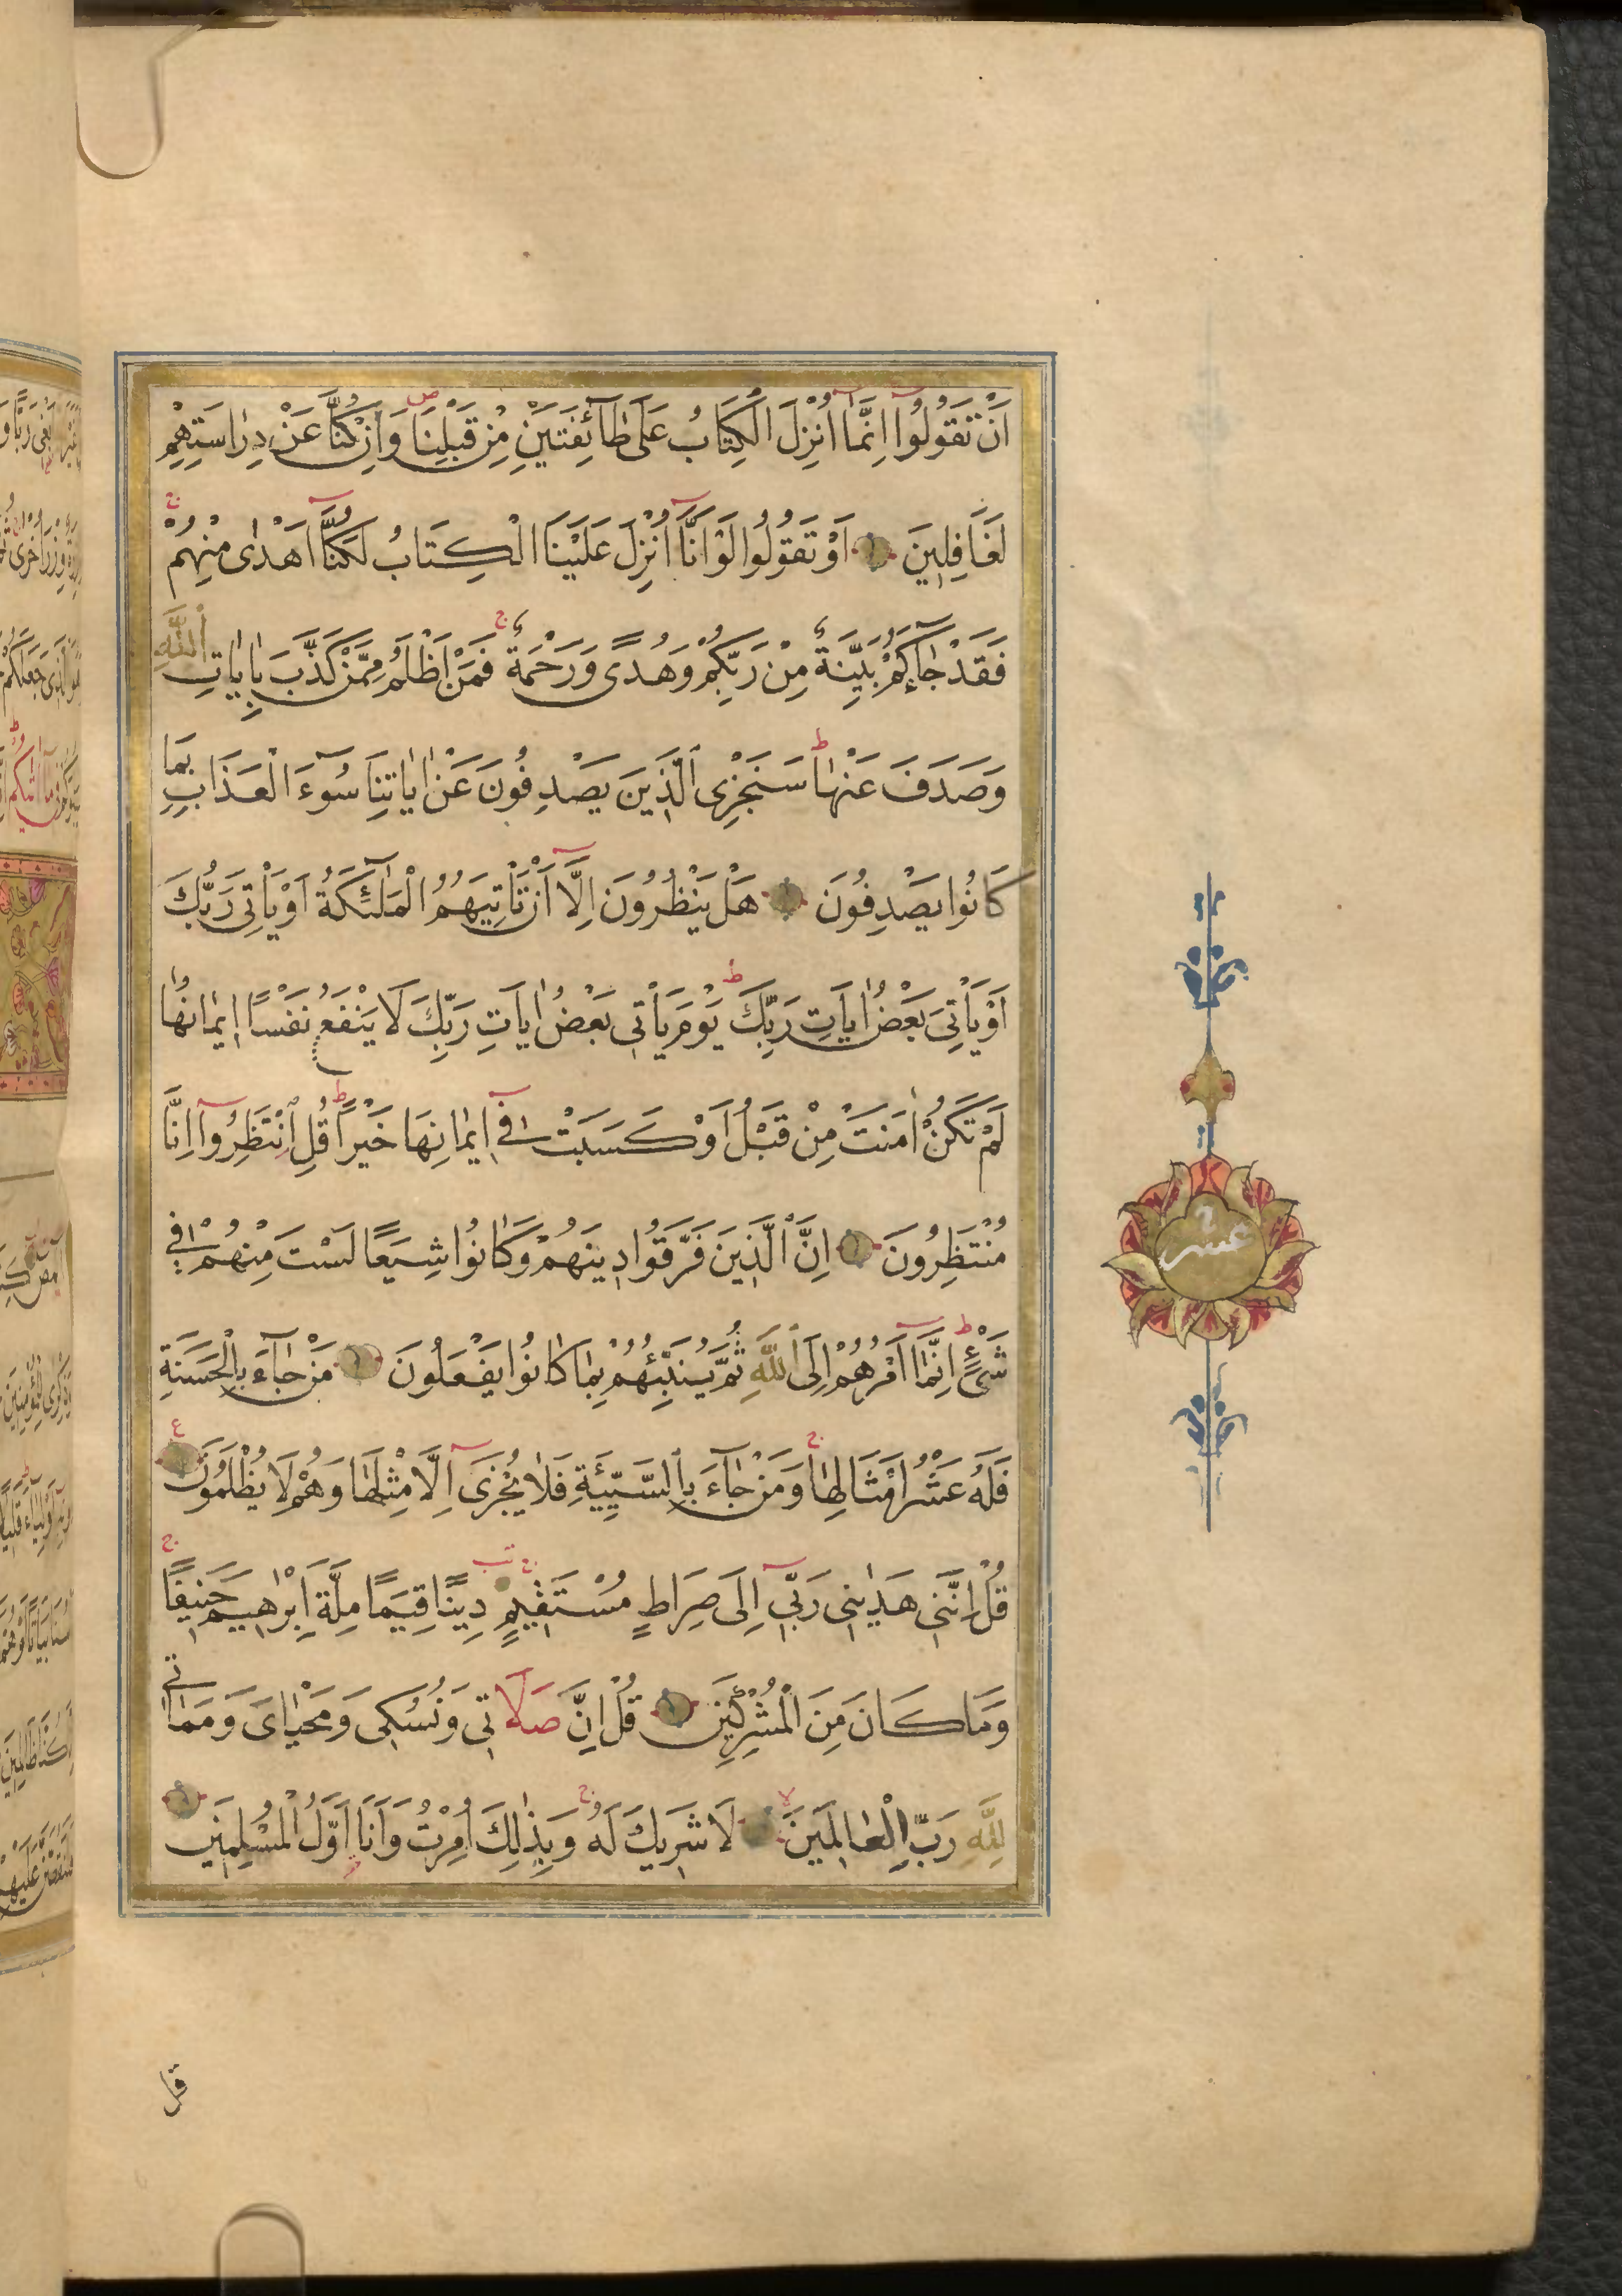 اَنْ تَقُولُوٓا اِنَّمَٓا اُنْزِلَ الْكِتَابُ عَلٰى طَٓائِفَتَيْنِ مِنْ قَبْلِنَا وَاِنْ كُنَّا عَنْ دِرَاسَتِهِمْ
لَغَافِلِينَ اَوْ تَقُولُوا لَوْ اَنَّٓا اُنْزِلَ عَلَيْنَا الْكِتَابُ لَكُنَّٓا اَهْدٰى مِنْهُمْ
فَقَدْ جَٓاءَكُمْ بَيِّنَةٌ مِنْ رَبِّكُمْ وَهُدًى وَرَحْمَةٌ فَمَنْ اَظْلَمُ مِمَّنْ كَذَّبَ بِاٰيَاتِ اللّٰهِ
وَصَدَفَ عَنْهَا سَنَجْزِى الَّذِينَ يَصْدِفُونَ عَنْ اٰيَاتِنَا سُوٓءَ الْعَذَابِ بِمَا
كَانُوا يَصْدِفُونَ هَلْ يَنْظُرُونَ اِلَّٓا اَنْ تَاْتِيَهُمُ الْمَلٰٓئِكَةُ اَوْ يَاْتِىَ رَبُّكَ
اَوْ يَاْتِىَ بَعْضُ اٰيَاتِ رَبِّكَ يَوْمَ يَاْتِى بَعْضُ اٰيَاتِ رَبِّكَ لَا يَنْفَعُ نَفْسًا اِيمَانُهَا
لَمْ تَكُنْ اٰمَنَتْ مِنْ قَبْلُ اَوْ كَسَبَتْ فِٓى اِيمَانِهَا خَيْرًا قُلِ انْتَظِرُوٓا اِنَّا
مُنْتَظِرُونَ اِنَّ الَّذِينَ فَرَّقُوا دِينَهُمْ وَكَانُوا شِيَعًا لَسْتَ مِنْهُمْ فِى
شَىْءٍ اِنَّمَٓا اَمْرُهُمْ اِلَى اللّٰهِ ثُمَّ يُنَبِّئُهُمْ بِمَا كَانُوا يَفْعَلُونَ مَنْ جَٓاءَ بِالْحَسَنَةِ
فَلَهُ عَشْرُ اَمْثَالِهَا وَمَنْ جَٓاءَ بِالسَّيِّئَةِ فَلَا يُجْزٰٓى اِلَّا مِثْلَهَا وَهُمْ لَا يُظْلَمُونَ
قُلْ اِنَّنِى هَدٰينِى رَبِّٓى اِلٰى صِرَاطٍ مُسْتَقِيمٍ دِينًا قِيَمًا مِلَّةَ اِبْرٰهِيمَ حَنِيفًا
وَمَا كَانَ مِنَ الْمُشْرِكِينَ قُلْ اِنَّ صَلَاتِى وَنُسُكِى وَمَحْيَاىَ وَمَمَاتِى
لِلّٰهِ رَبِّ الْعَالَمِينَ لَا شَرِيكَ لَهُ وَبِذٰلِكَ اُمِرْتُ وَاَنَا اَوَّلُ الْمُسْلِمِينَ
عشر
قل